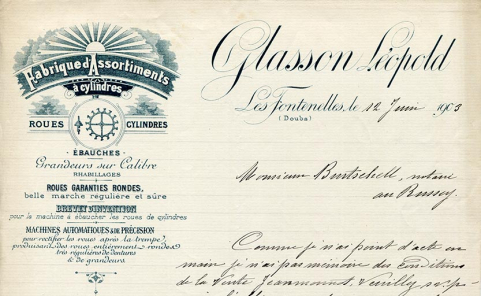 Fabrique d'Assortiments
à cylindres
ROUES CYLINDRES
ÉBAUCHES
Grandeurs sur Calibre
RHABILLAGES
ROUES GARANTIES RONDES,
belle marche régulière et sûre
BREVET D'INVENTION
pour la machine à ébaucher les roues de cylindres
MACHINES AUTOMATIQUES & DE PRÉCISION
pour rectifier les roues après la trempe,
produisant des roues entièrement rondes
très régulières de dentures
& de grandeurs
Glasson Léopold
Les Fontenelles, le 12 Juin 1903
(Doubs)
Monsieur Burtschell, notaire
au Russey.
Comme je n'ai point d'acte en
main je n'ai pas mémoire des Conditions
de la Vente Jeanmonnot, Veuillez